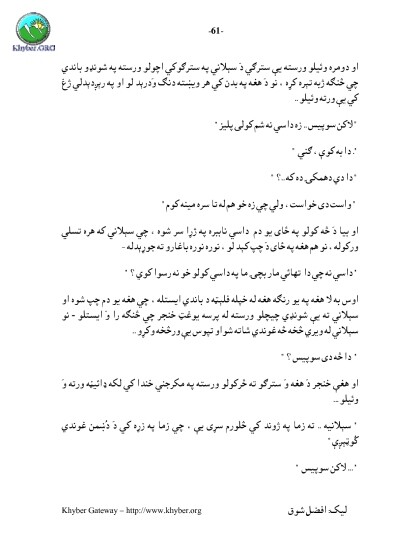 -61-
Khyber.ORG
او دومره وئیلو ورسته یې سترګې دَ سبلاني په سترګو کي اچولو ورسته په شونډو باندي
چي څنګه ژبه تېره کړه ، نو دَ هغه په بدن کي هر وېښته دنګ وَدرېد لو او په رېږدېدلي ژغ
کي یې ورته وئیلو..
"لاکن سوپیس.. زه داسي نه شم کولی پلیز "
". دا به کوې ، ګني "
"دا دي دهمکي ده که..؟ "
" واست دی خواست ، ولي چي زه خو هم له تا سره مینه کوم"
او بیا دَ څه کولو په ځای یو دم داسي ناببره په ژړا سر شوه ، چي سبلاني که هره تسلي
ورکوله ، نو هم هغه په ځای دَ چپ کېد لو ، نوره نوره باغاړو ته جوړېد له -
" داسي نه چي دا تهائي مار بچۍ ما په داسي کولو خو نه رسوا کوي ؟ "
اوس به لا هغه په یو رنګه هغه له خپله فلېټه دَ باندي ایستله ، چي هغه یو دم چپ شوه او
سبلاني ته یې شونډي چیچلو ورسته له پرسه یوغټ خنجر چي څنګه را وَ ایستلو - نو
سبلاني له ویري څخه څه غوندي شاته شو او تپوس یې ورڅخه وکړو..
" دا څه دی سوپیس ؟ "
او هغې خنجر دَ هغه وَ سترګو ته څرکولو ورسته په مکرجني خندا کي لکه ډائیڼه ورته وَ
وئیلو...
" سبلانیه .. ته زما په ژوند کي څلورم سړی یې ، چي زما په زړه کي دَ دُښمن غوندي
ګوټېږې "
"...لاکن سوپیس "
Khyber Gateway – http://www.khyber.org
لیک: افضل شوق